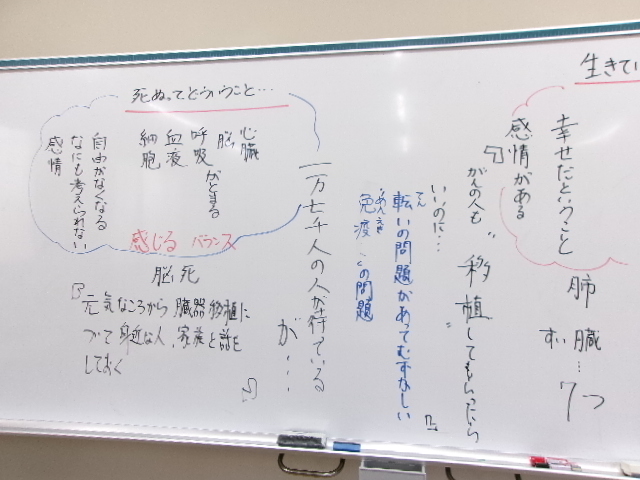 生きてい
幸せだということ
感情がある
肺
臓…
すい
7つ
『がんの人も
"移植"してもらったら
いいのに…
てん
転いの問題があってむずかしい
めんえき
免疫 〃の問題』
死ぬってどういうこと…
心臓
脳
呼吸
血液
細胞
がとまる
自由がなくなる
なにも考えられない
感情
感じる バランス
一万七千人の人が待っている
が・・・
脳死
『元気なころから臓器移植に
ついて身近な人、家族と話を
しておく』